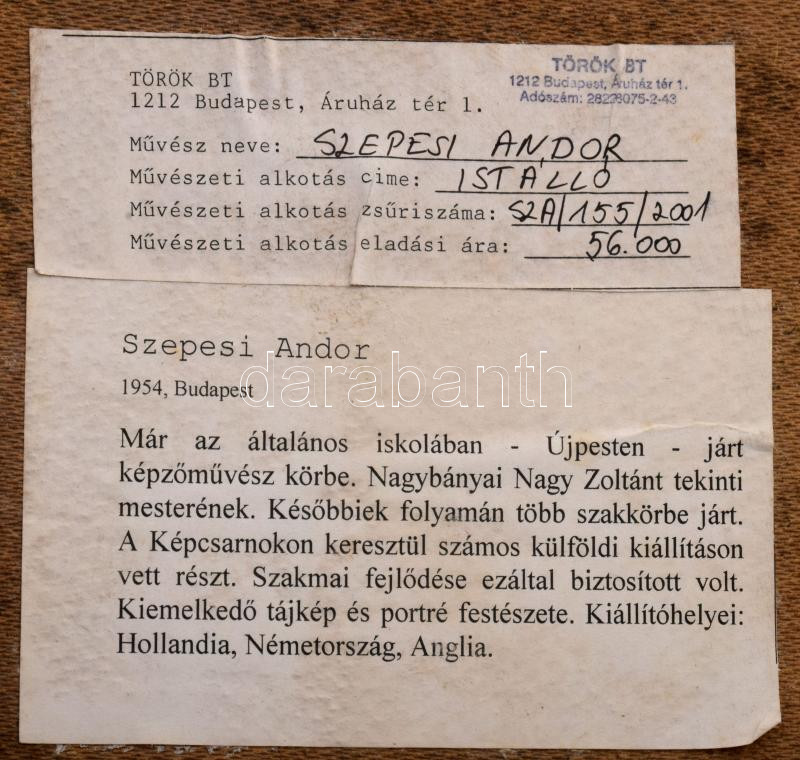 TÖRÖK BT
1212 Budapest, Áruház tér 1.
TÖRÖK BT
1212 Budapest, Áruház tér 1.
Adószám: 28228075-2-43
Művész neve: SZEPESI ANDOR
Művészeti alkotás cime: ISTÁLLÓ
Művészeti alkotás zsűriszáma: SZA/155/2001
Művészeti alkotás eladási ára: 56.000
Szepesi Andor
1954, Budapest
darabanth
Már az általános iskolában - Újpesten - járt
képzőművész körbe. Nagybányai Nagy Zoltánt tekinti
mesterének. Későbbiek folyamán több szakkörbe járt.
A Képcsarnokon keresztül számos külföldi kiállításon
vett részt. Szakmai fejlődése ezáltal biztosított volt.
Kiemelkedő tájkép és portré festészete. Kiállítóhelyei:
Hollandia, Németország, Anglia.